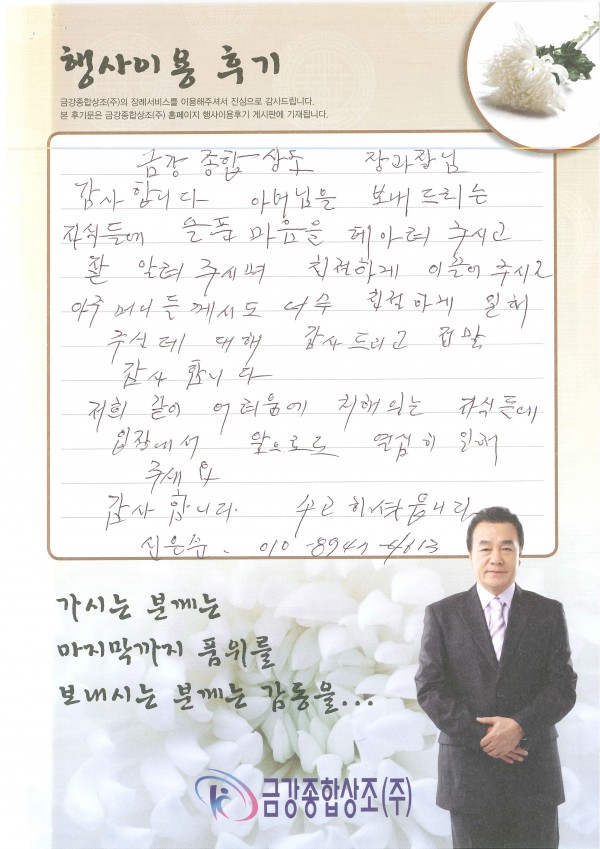 행사이용 후기
금강종합상조(주)의 장례서비스를 이용해주셔서 진심으로 감사드립니다.
본 후기문은 금강종합상조(주) 홈페이지 행사이용후기 게시판에 기재됩니다.
금강 종합상조 장과장님
감사 합니다 아버님을 보내 드리는
자식들에 슬픔 마음을 헤아려 주시고
잘 알려 주시며 친절하게 이끌어 주시고
아주머니들께서도 너무 친절하게 일해
주신데 대해 감사드리고 정말
감사 합니다
저희 같이 어려움에 처해있는 자식들에
입장에서 앞으로도 열심히 일해
주세요
감사 합니다. 수고 하셨읍니다
010-8947-4613
가시는 분께는
마지막까지 품위를
보내시는 분께는 감동을...
금강종합상조(주)